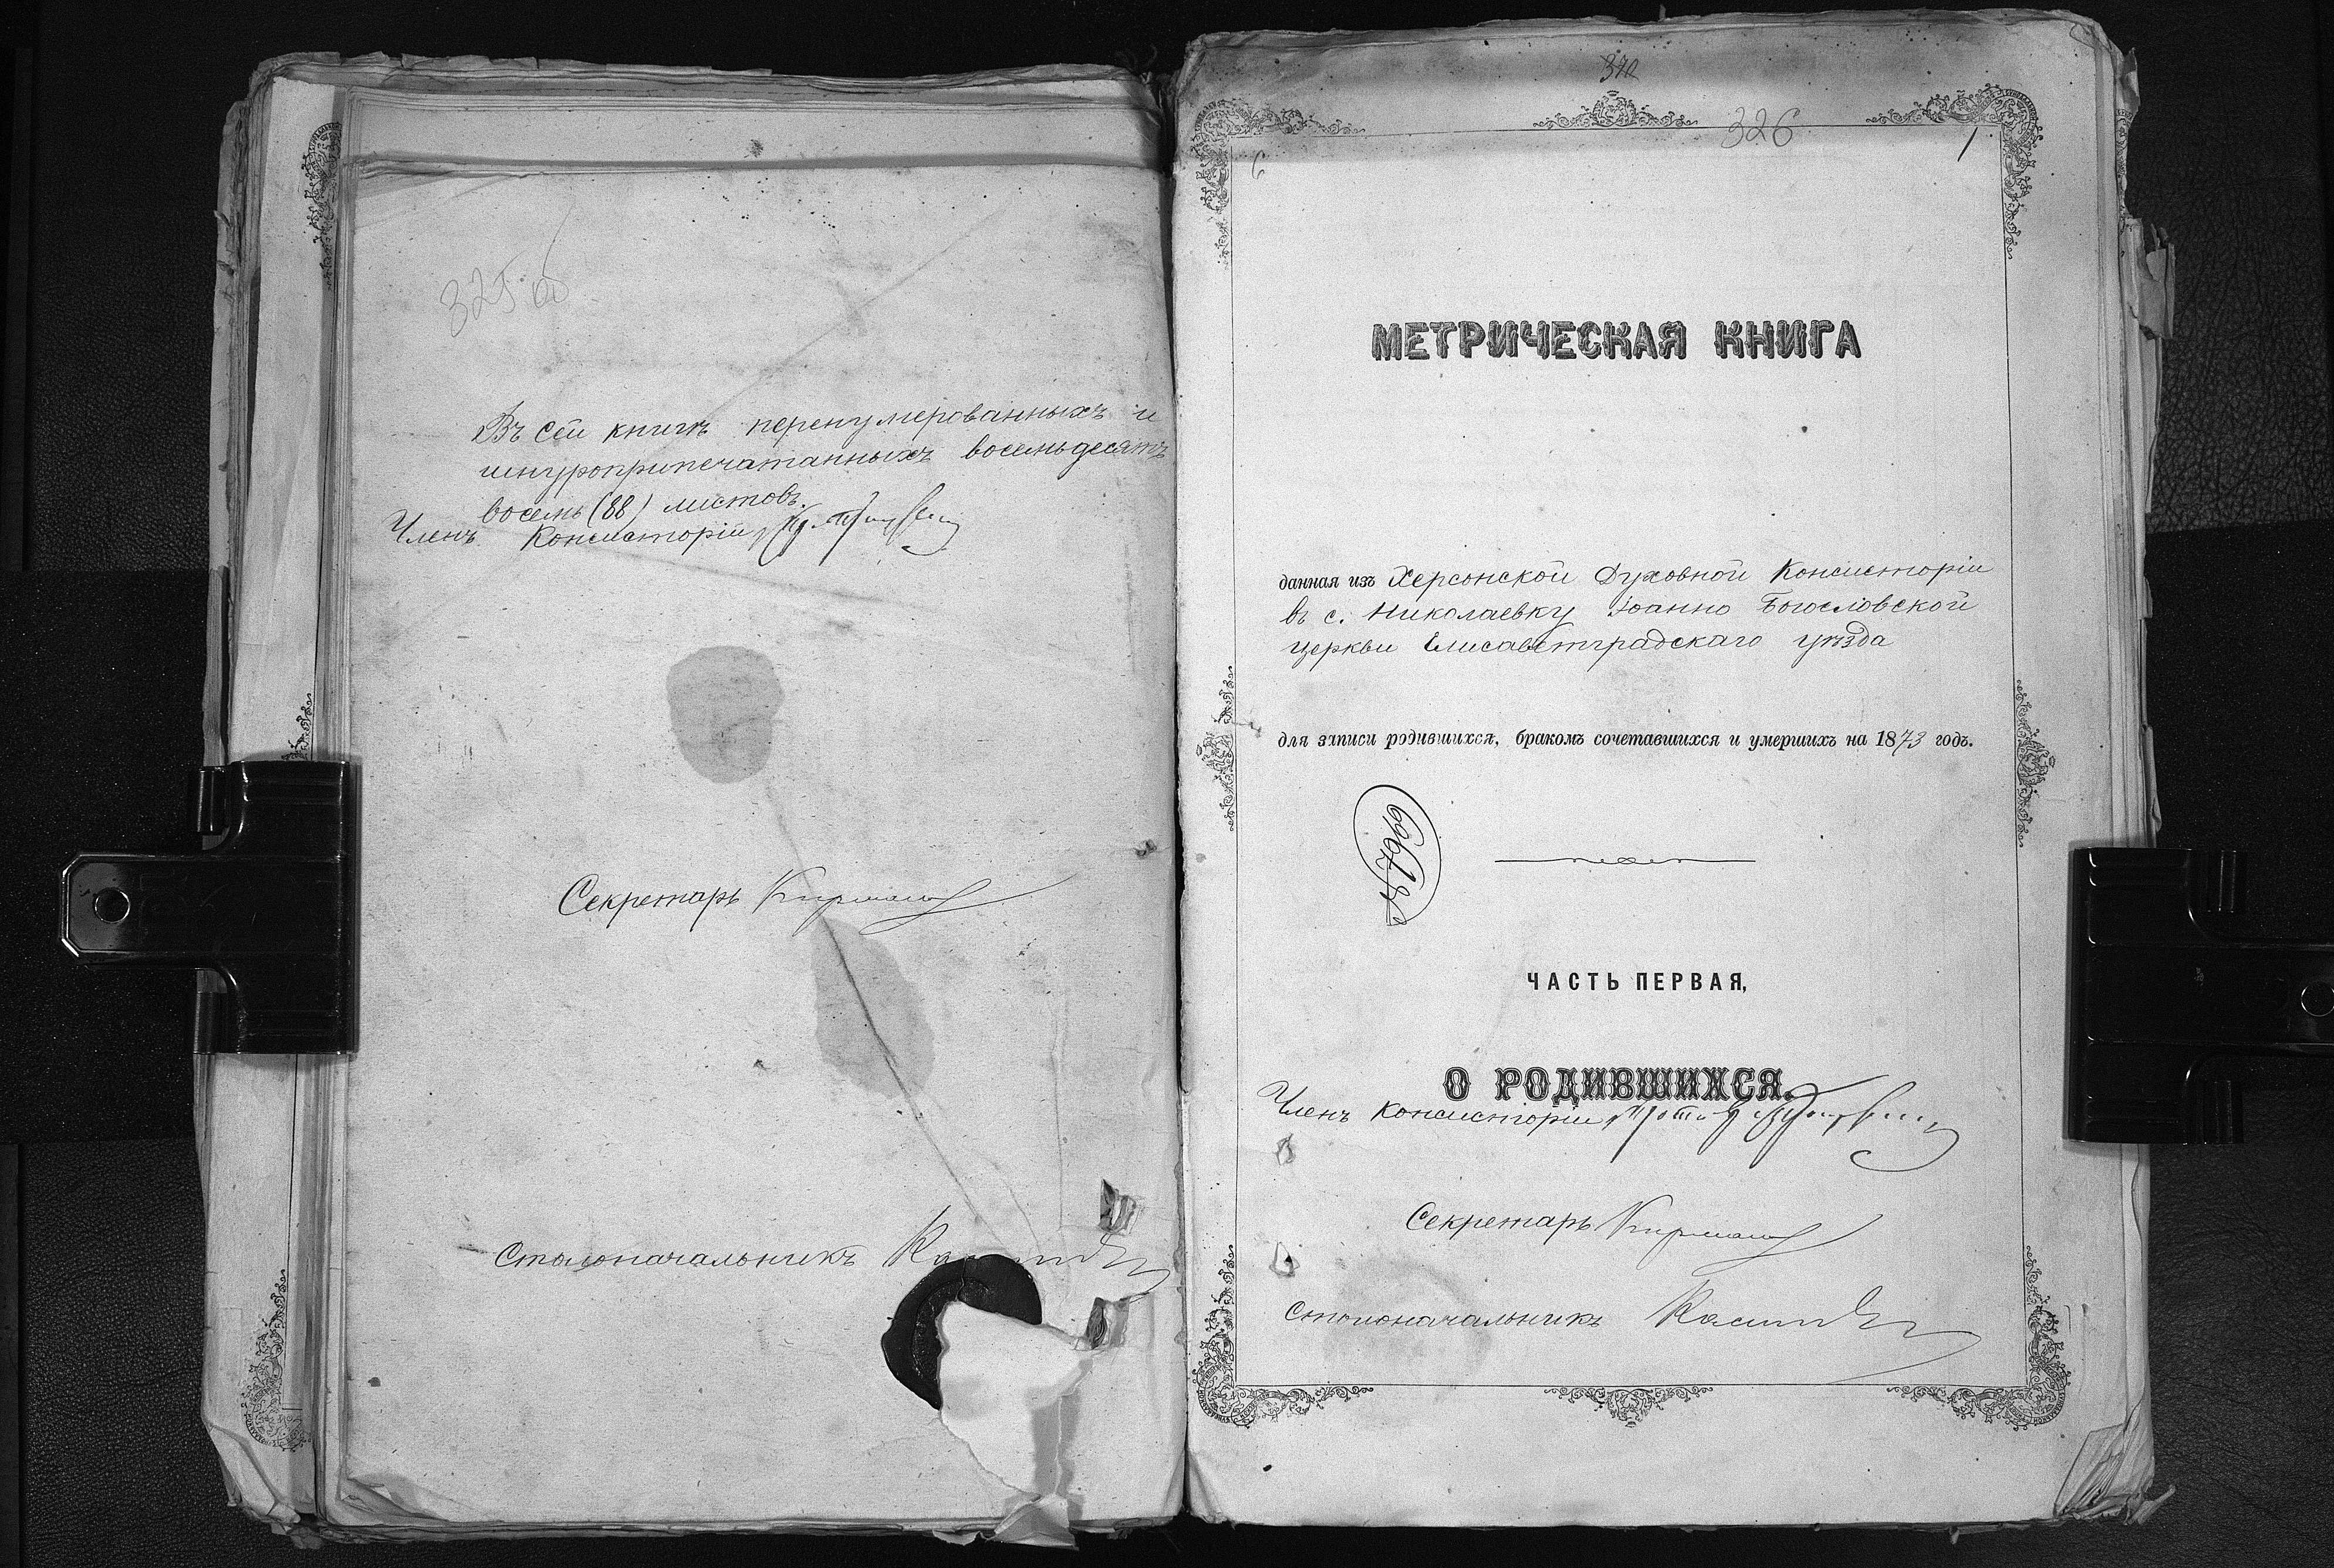 325 об
Въ сей книгѣ перенумерованныхъ и
шнуроприпечатанныхъ восемьдесятъ
восемь (88) листовъ.
Членъ Консисторіи
Секретарь
Столоначальникъ
326
1
6
МЕТРИЧЕСКАЯ КНИГА
данная изъ Херсонской Духовной Консисторіи
въ с. Николаевку Іоанно Богословской
церкви Елисаветградскаго уѣзда
для записи родившихся, бракомъ сочетавшихся и умершихъ на 1873 годъ.
ЧАСТЬ ПЕРВАЯ,
О РОДИВШИХСЯ.
Членъ Консисторіи
Секретарь
Столоначальникъ